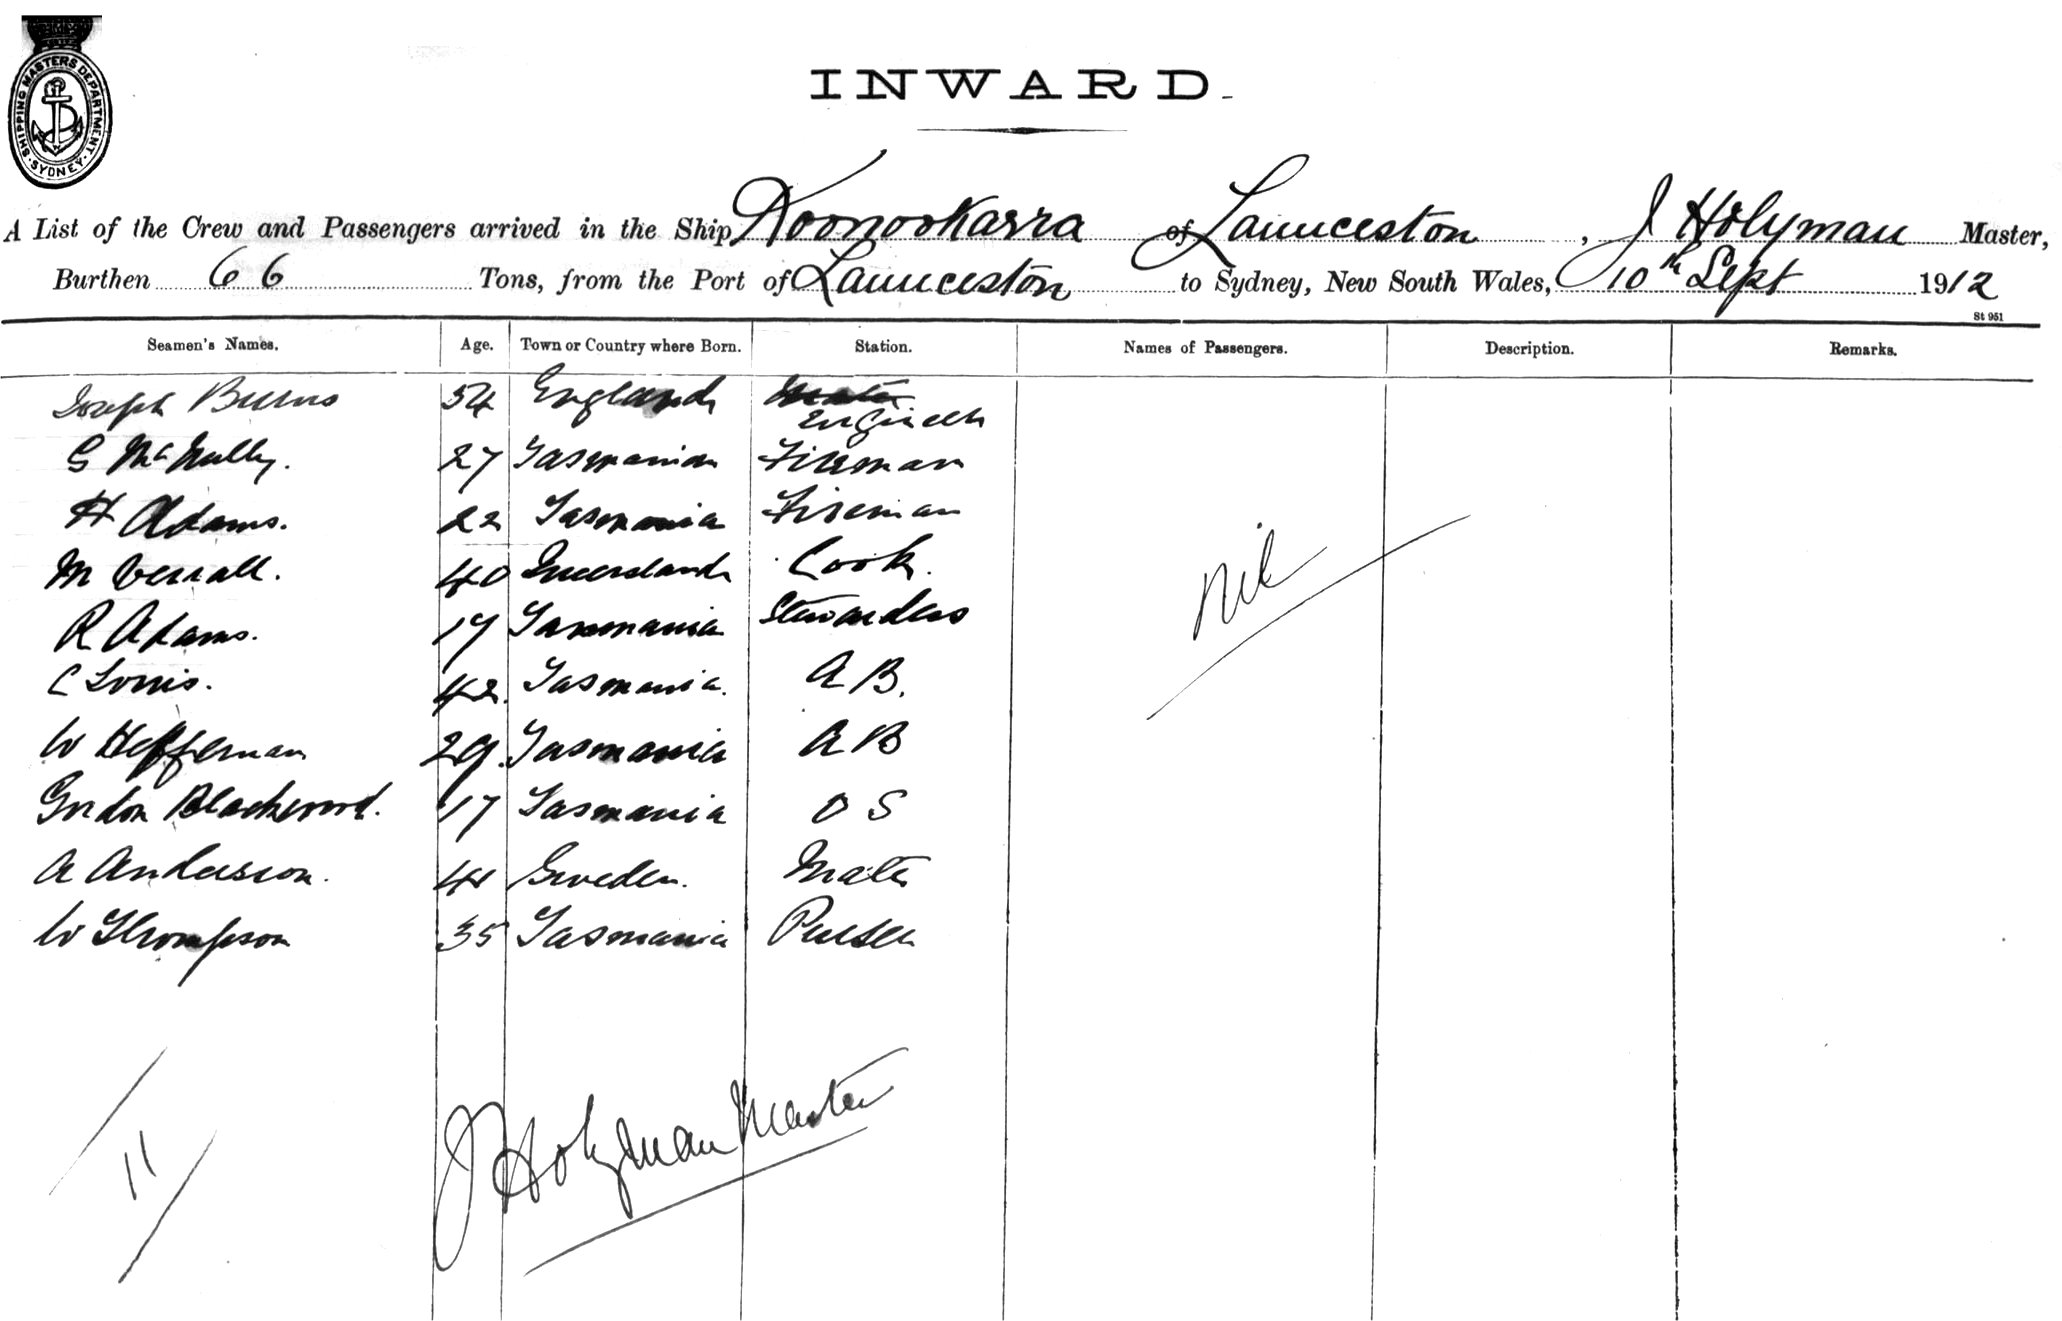 SHIPPING MASTERS DEPARTMENT. SYDNEY.
INWARD.
A List of the Crew and Passengers arrived in the Ship Koonookarra of Launceston, J Holyman Master,
Burthen 66 Tons, from the Port of Launceston to Sydney, New South Wales, 10th Sept 1912
St 951
Seamen's Names. Age. Town or Country where Born. Station. Names of Passengers. Description. Remarks.
Joseph Burns 54 England Mate
Engineer
G McNully. 27 Tasmania Fireman
H Adams. 22 Tasmania Fireman
M 40 Queensland Cook.
R Adams. 17 Tasmania Stewardess
C 42. Tasmania. A B.
Nil
W Heffernan 29. Tasmania A B
Gordon Blackwood. 17 Tasmania O S
A Anderson. 41 Sweden. Mate
W Thompson 35 Tasmania Purser
J Holyman Master
11